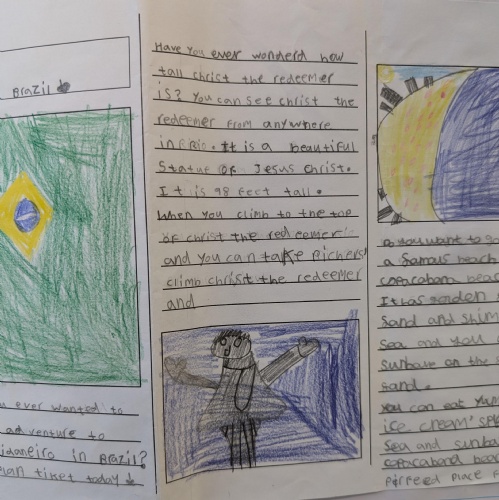 Brazil
u ever wanted to
adventure to
idaneiro in Brazil?
lan tiket today
Have you ever wonderd how
tall christ the redeemer
is? You can see christ the
redeemer from anywhere
in rio. It is a beautiful
Statue of Jesus christ.
It is 98 feet tall.
When you climb to the top
of christ the redeemer
and you can take Pichers
climb christ the redeemer
and
Do you want to
a famous beach
copacabana bea
It has golden
Sand and Shim
Sea and you
sunbave on the
sand.
You can eat yum
ice cream
Sea and sunba
copacabana bea
Perfeed Place